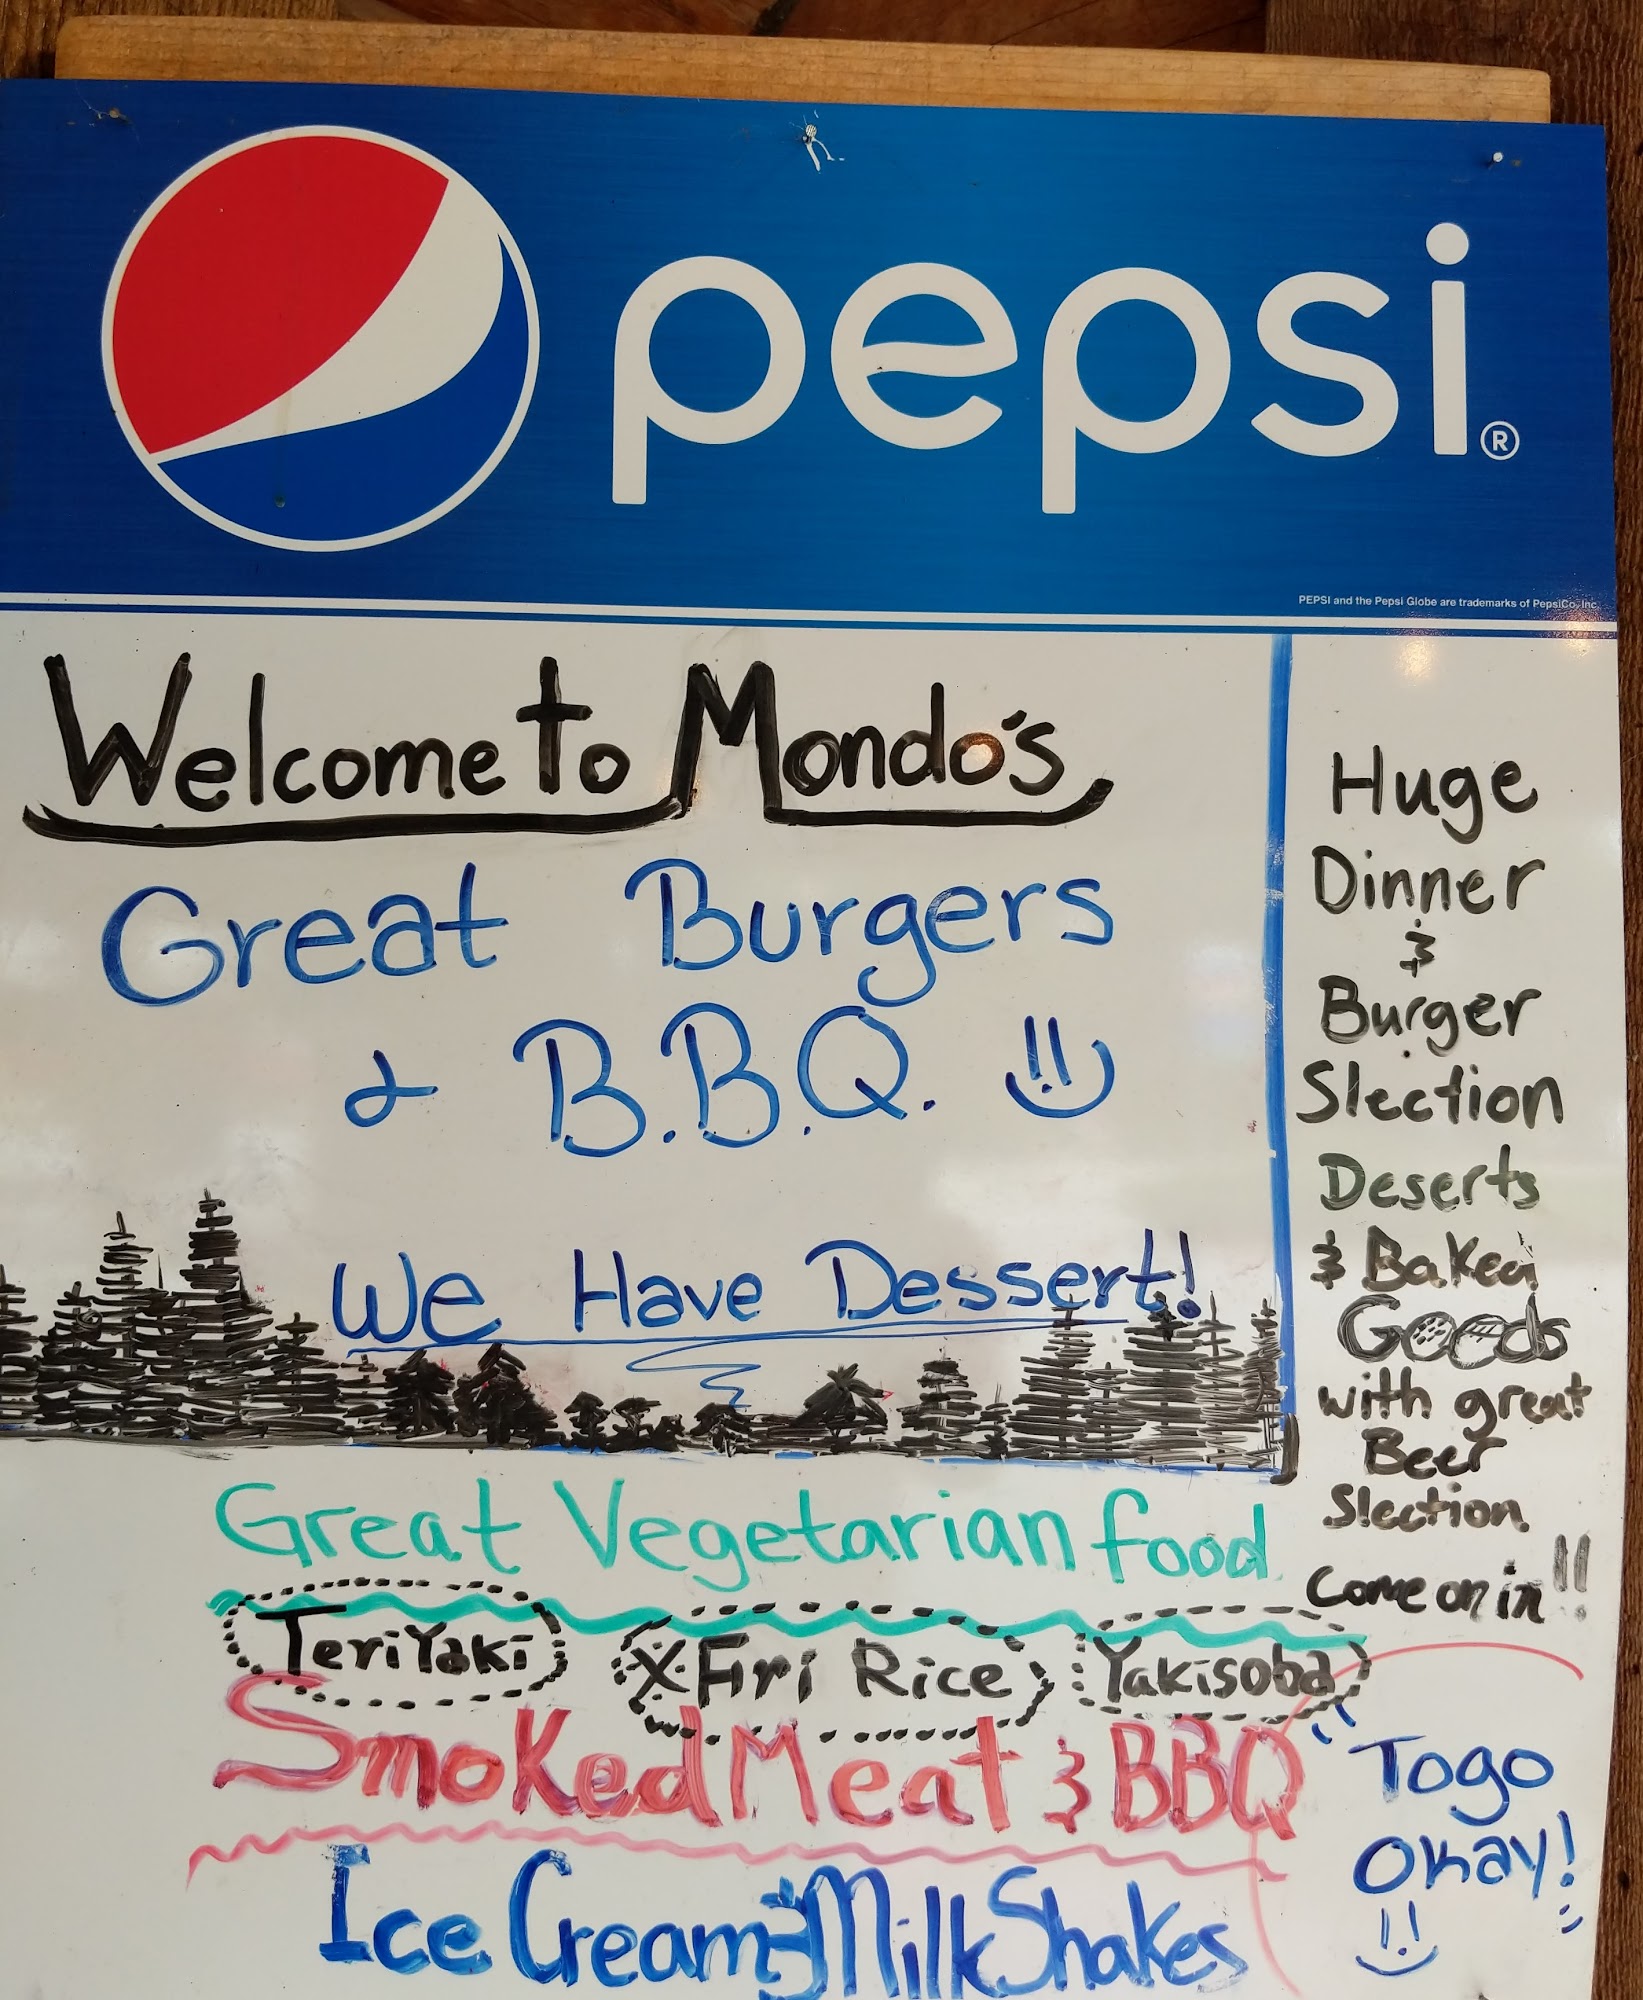 pepsi®
PEPSI and the Pepsi Globe are trademarks of PepsiCo, Inc.
Welcome to Mondo's
Great Burgers
& B.B.Q.
We Have Dessert!
Huge
Dinner
&
Burger
Slection
Deserts
& Baked
Goods
with great
Beer
Slection
Come on in!!
Great Vegetarian food
TeriYaki
Firi Rice
Yakisoba
Smoked Meat & BBQ
Ice Cream & MilkShakes
"Togo
Okay!"